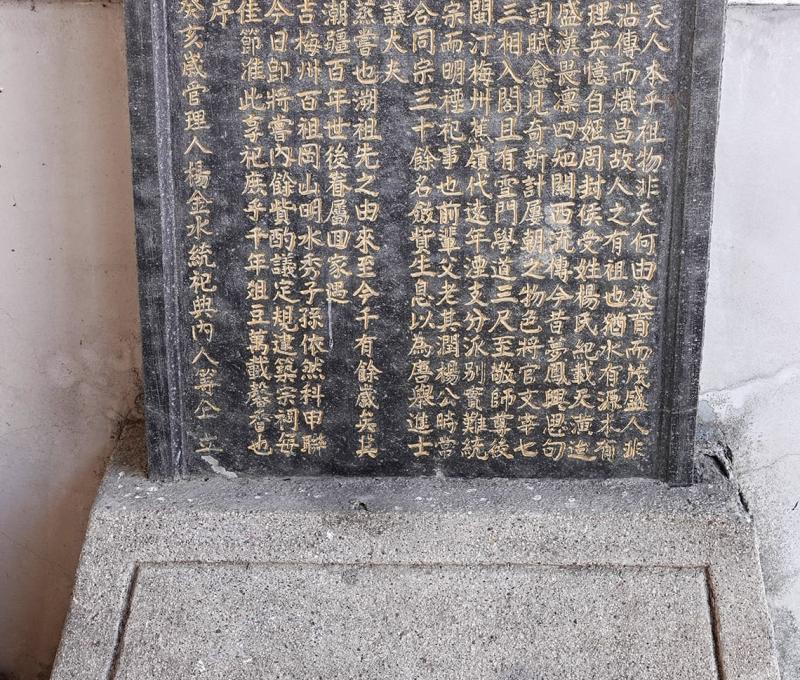 天人本乎祖物非天何由發育而茂盛人非
沿傳而熾昌故人之有祖也猶水有源木有
理矣憶自姬周封侯受姓楊氏紀載天潢迨
盛漢畏凜四知關西流傳今昔夢鳳興思句
詞賦愈見奇新計屢朝之物色將官文宰七
三相入閣且有雪門學道三尺至敬師尊後
閩汀梅州蕉嶺代遠年湮支分派別實難統
宗而明禋祀事也前輩父老其潤楊公時常
合同宗三十餘名斂貲生息以為唐興進士
議大夫
蒸嘗也溯祖先之由來至今千有餘歲矣其
潮疆百年世後眷屬回家過
吉梅州百祖岡山明水秀子孫依然科甲聯
今日即將嘗內餘貲酌議定規建築宗祠每
佳節准此享祀庶乎千年俎豆萬載馨香也
序
癸亥歲管理人楊金水統祀典內人等仝立